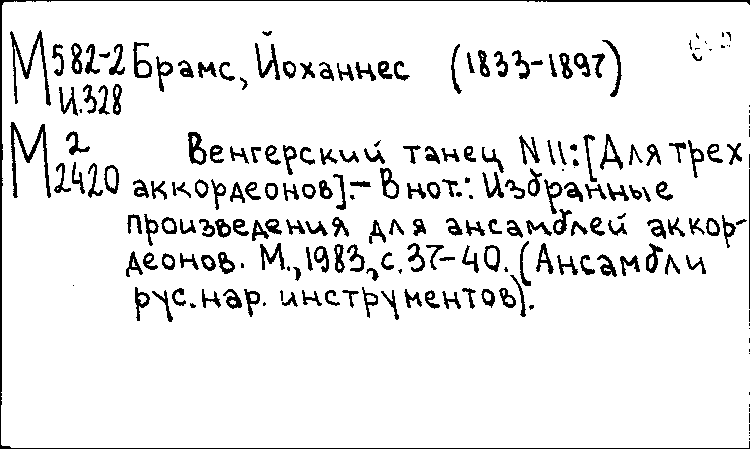 М 582-2 Брамс, Йоханнес (1833-1897)
И.328
М 2 Венгерский танец N 11: [Для трех
2420 аккордеонов].- В нот.: Избранные
произведения для ансамблей аккор-
деонов. М., 1983, с. 37-40. (Ансамбли
рус. нар. инструментов).